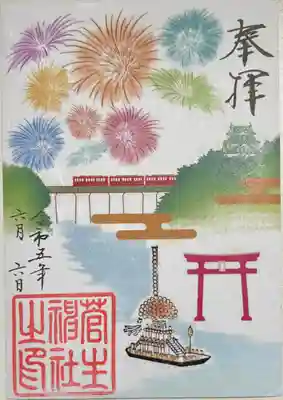 奉拝
令和五年
六月六日
菅生
神社
之印